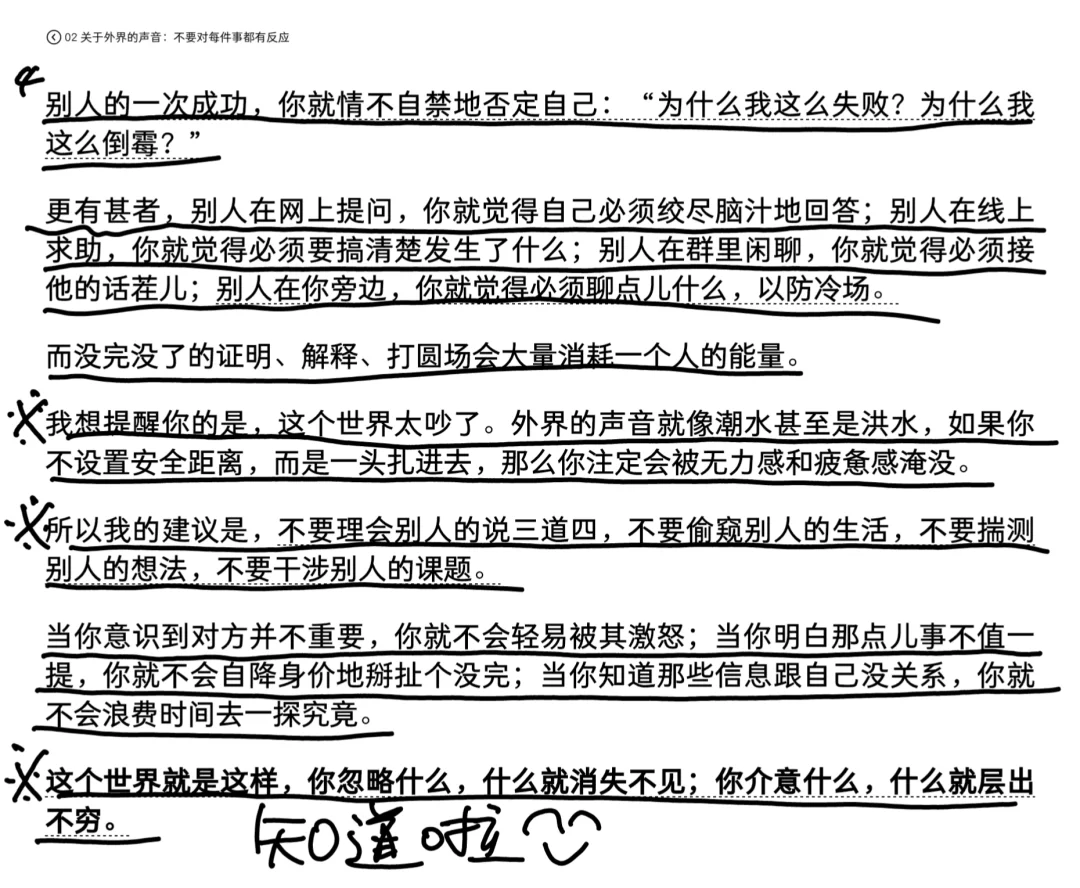 02 关于外界的声音：不要对每件事都有反应
别人的一次成功，你就情不自禁地否定自己：“为什么我这么失败？为什么我
这么倒霉？”
更有甚者，别人在网上提问，你就觉得自己必须绞尽脑汁地回答；别人在线上
求助，你就觉得必须要搞清楚发生了什么；别人在群里闲聊，你就觉得必须接
他的话茬儿；别人在你旁边，你就觉得必须聊点儿什么，以防冷场。
而没完没了的证明、解释、打圆场会大量消耗一个人的能量。
我想提醒你的是，这个世界太吵了。外界的声音就像潮水甚至是洪水，如果你
不设置安全距离，而是一头扎进去，那么你注定会被无力感和疲惫感淹没。
所以我的建议是，不要理会别人的说三道四，不要偷窥别人的生活，不要揣测
别人的想法，不要干涉别人的课题。
当你意识到对方并不重要，你就不会轻易被其激怒；当你明白那点儿事不值一
提，你就不会自降身价地掰扯个没完；当你知道那些信息跟自己没关系，你就
不会浪费时间去一探究竟。
这个世界就是这样，你忽略什么，什么就消失不见；你介意什么，什么就层出
不穷。
知道啦